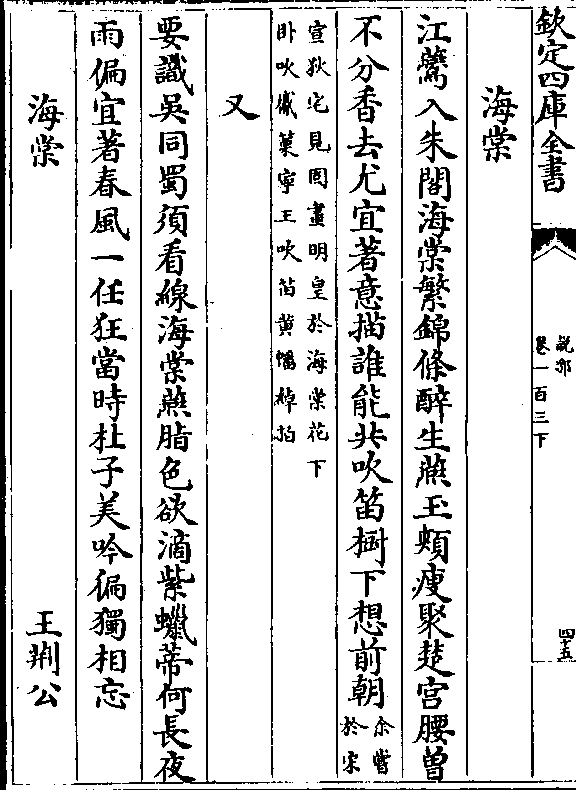 欽定四庫全書
說郛
卷一百三下
四十五
海棠
江鶯入朱閣海棠繁錦條醉生燕玉頰瘦聚楚宮腰曽
不分香去尤宜著意描誰能共吹笛樹下想前朝余嘗
於宋
宣狄宅見圖畫明皇於海棠花下
臥吹觱篥寧王吹笛黄幡綽拍
又
要識吳同蜀須看線海棠燕脂色欲滴紫蠟蒂何長夜
雨偏宜著春風一任狂當時杜子美吟徧獨相忘
海棠
王荆公